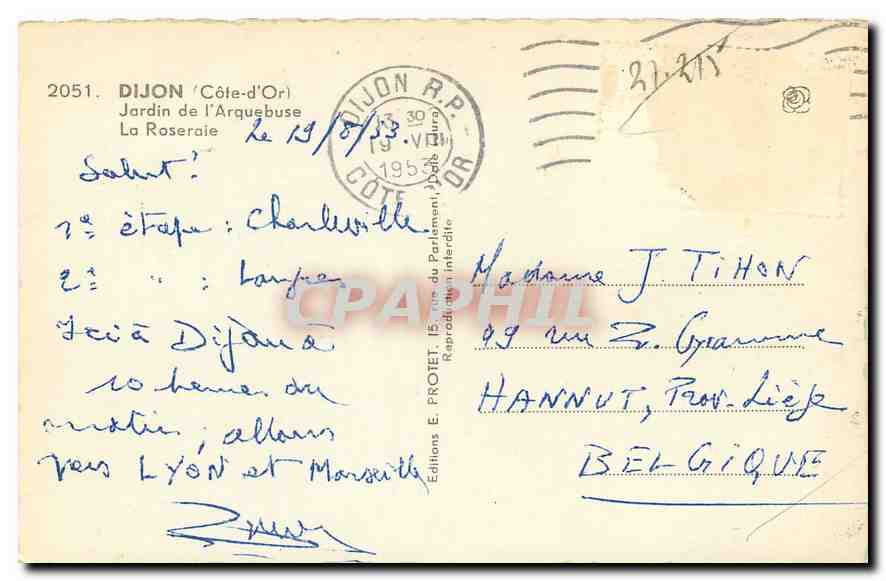 2051. DIJON (Côte-d'Or)
Jardin de l'Arquebuse
La Roseraie
DIJON R.P.
13 30
19 VIII
1953
CÔTE D'OR
27.215
Le 19/8/53.
Salut!
1e étape : Charleville
2e " : Langres
Ici à Dijon à
10 heures du
matin, allons
vers LYON et Marseille
Editions E. PROTET, 15, rue du Parlement, Dole (Jura)
Reproduction interdite
CPAPHIL
Madame J. TIHON
99 rue Z. Gramme
HANNUT, Prov. Liège
BELGIQUE